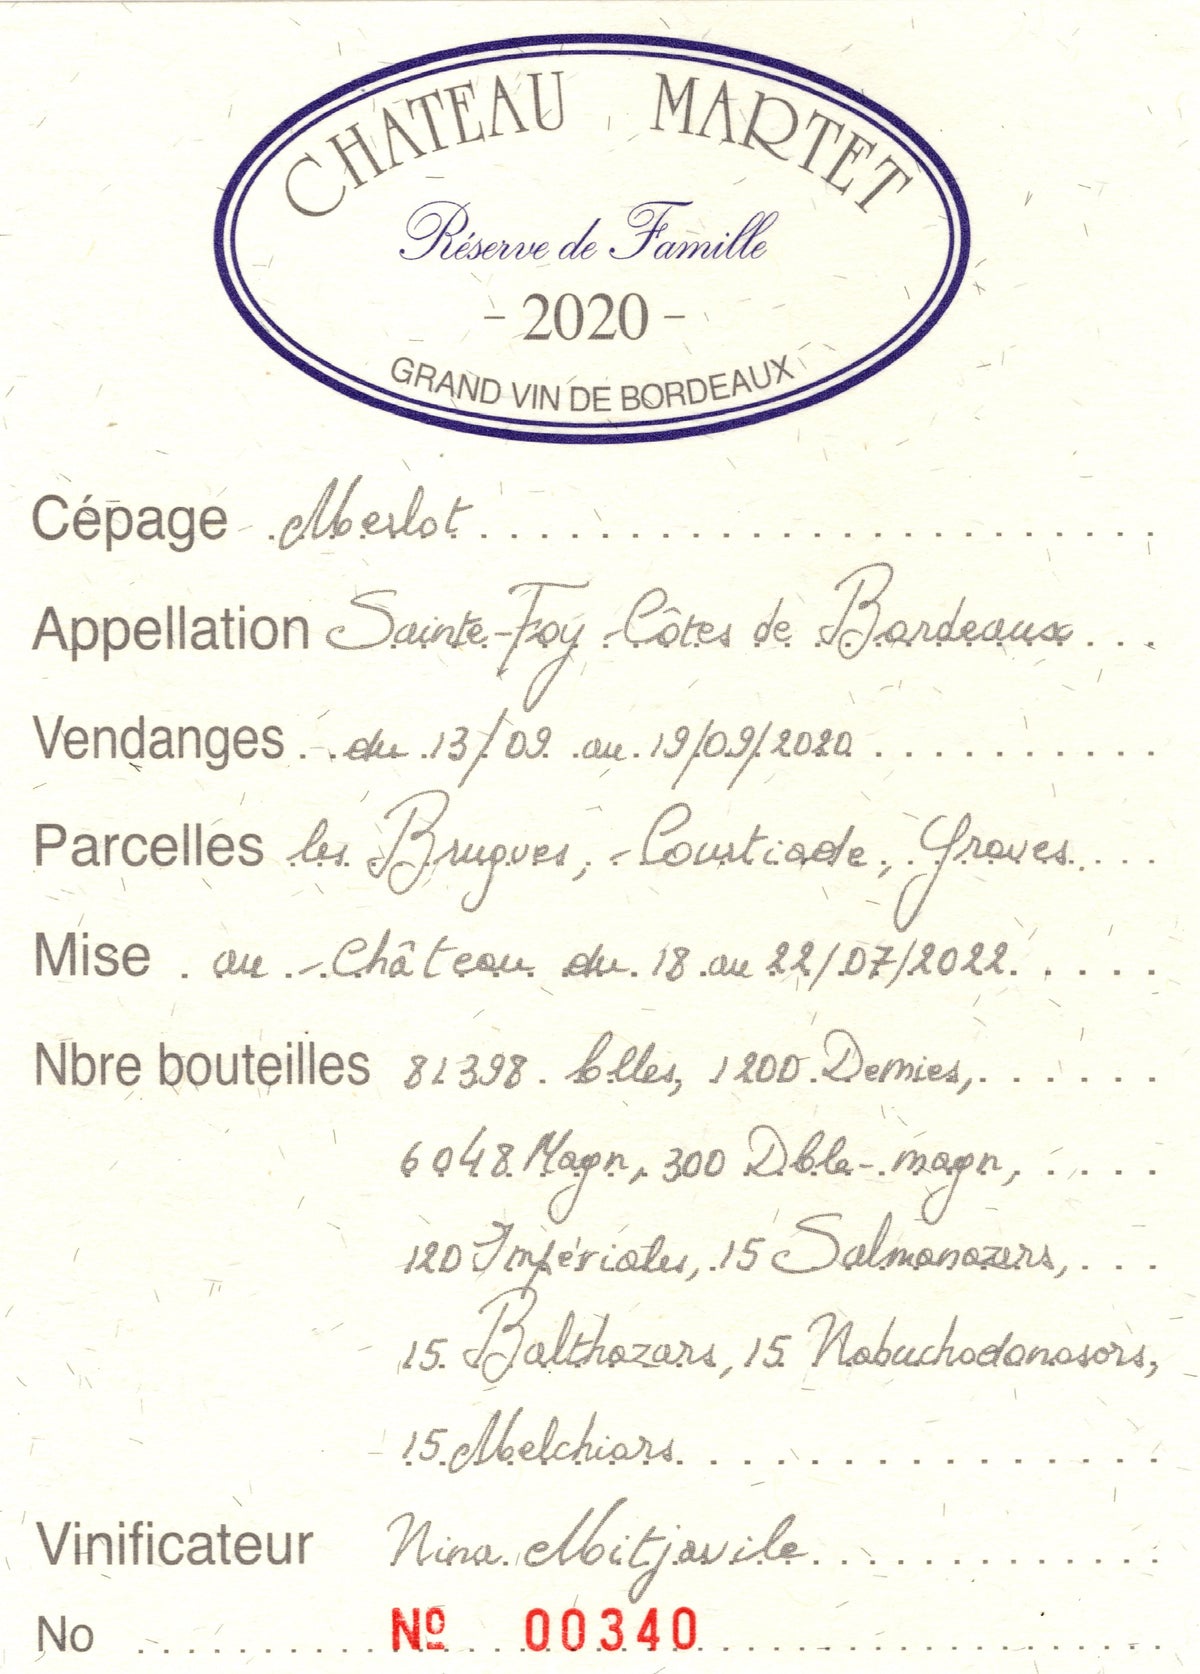 CHATEAU MARTET
Réserve de Famille
- 2020 -
GRAND VIN DE BORDEAUX
Cépage Merlot
Appellation Sainte-Foy Côtes de Bordeaux
Vendanges du 13/09 au 19/09/2020
Parcelles les Brugues, Coustiade, Graves
Mise au Château du 18 au 22/07/2022
Nbre bouteilles 81398 blles, 1200 Demies,
6048 Magn, 300 Dble-magn,
120 Impériales, 15 Salmanazars,
15 Balthazars, 15 Nabuchodonosors,
15 Melchiors
Vinificateur Nina Mitjavile
No Nº 00340